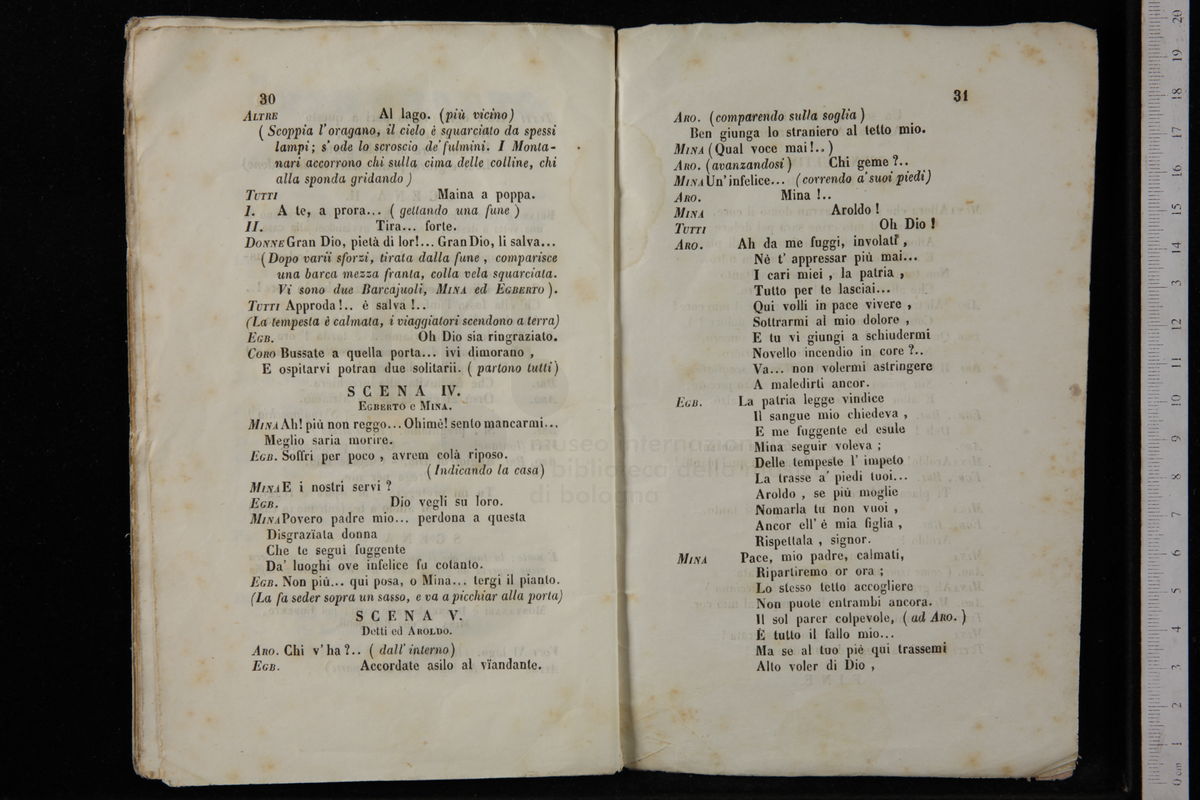 30
ALTRE Al lago. (più vicino)
(Scoppia l'oragano, il cielo è squarciato da spessi
lampi; s'ode lo scroscio de' fulmini. I Monta-
nari accorrono chi sulla cima delle colline, chi
alla sponda gridando)
TUTTI Maina a poppa.
I. A te, a prora... (gettando una fune)
II. Tira... forte.
DONNE Gran Dio, pietà di lor!... Gran Dio, li salva...
(Dopo varii sforzi, tirata dalla fune, comparisce
una barca mezza franta, colla vela squarciata.
Vi sono due Barcajuoli, MINA ed EGBERTO).
TUTTI Approda!.. è salva!..
(La tempesta è calmata, i viaggiatori scendono a terra)
EGB. Oh Dio sia ringraziato.
CORO Bussate a quella porta... ivi dimorano,
E ospitarvi potran due solitarii. (partono tutti)
SCENA IV.
EGBERTO e MINA.
MINA Ah! più non reggo... Ohimè! sento mancarmi...
Meglio saria morire.
EGB. Soffri per poco, avrem colà riposo.
(Indicando la casa)
MINA E i nostri servi?
EGB. Dio vegli su loro.
MINA Povero padre mio... perdona a questa
Disgrazïata donna
Che te seguì fuggente
Da' luoghi ove infelice fu cotanto.
EGB. Non più... qui posa, o Mina... tergi il pianto.
(La fa seder sopra un sasso, e va a picchiar alla porta)
SCENA V.
Detti ed AROLDO.
ARO. Chi v'ha?.. (dall'interno)
EGB. Accordate asilo al vïandante.
31
ARO. (comparendo sulla soglia)
Ben giunga lo straniero al tetto mio.
MINA (Qual voce mai!..)
ARO. (avanzandosi) Chi geme?..
MINA Un'infelice... (correndo a' suoi piedi)
ARO. Mina!..
MINA Aroldo!
TUTTI Oh Dio!
ARO. Ah da me fuggi, involati,
Nè t'appressar più mai...
I cari miei, la patria,
Tutto per te lasciai...
Qui volli in pace vivere,
Sottrarmi al mio dolore,
E tu vi giungi a schiudermi
Novello incendio in core?..
Va... non volermi astringere
A maledirti ancor.
EGB. La patria legge vindice
Il sangue mio chiedeva,
E me fuggente ed esule
Mina seguir voleva;
Delle tempeste l'impeto
La trasse a' piedi tuoi...
Aroldo, se più moglie
Nomarla tu non vuoi,
Ancor ell'è mia figlia,
Rispettala, signor.
MINA Pace, mio padre, calmati,
Ripartiremo or ora;
Lo stesso tetto accogliere
Non puote entrambi ancora.
Il sol parer colpevole, (ad ARO.)
È tutto il fallo mio...
Ma se al tuo piè qui trassemi
Alto voler di Dio,
museo internazionale
e biblioteca della musica
di bologna